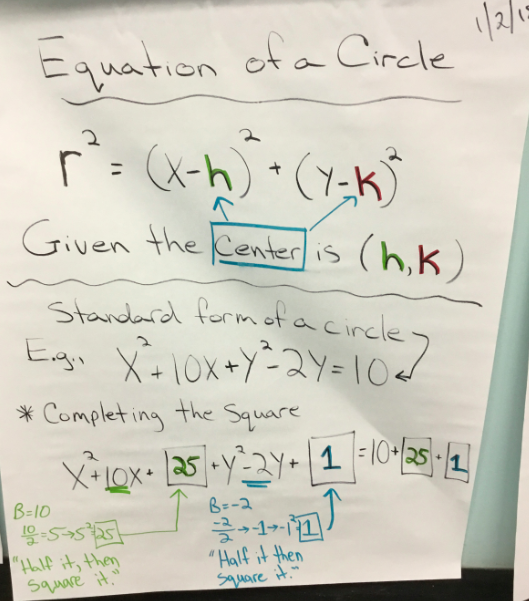 1/2/1
Equation of a Circle
r² = (X-h)² + (Y-k)²
Given the Center is (h,k)
Standard form of a circle
E.g., X²+10X+Y²-2Y=10
* Completing the Square
X²+10X+ 25 +Y²-2Y+ 1 =10+25+1
B=10
10/2=5→5²=25
"Half it, then
Square it."
B=-2
-2/2→-1→-1²=1
"Half it then
Square it."